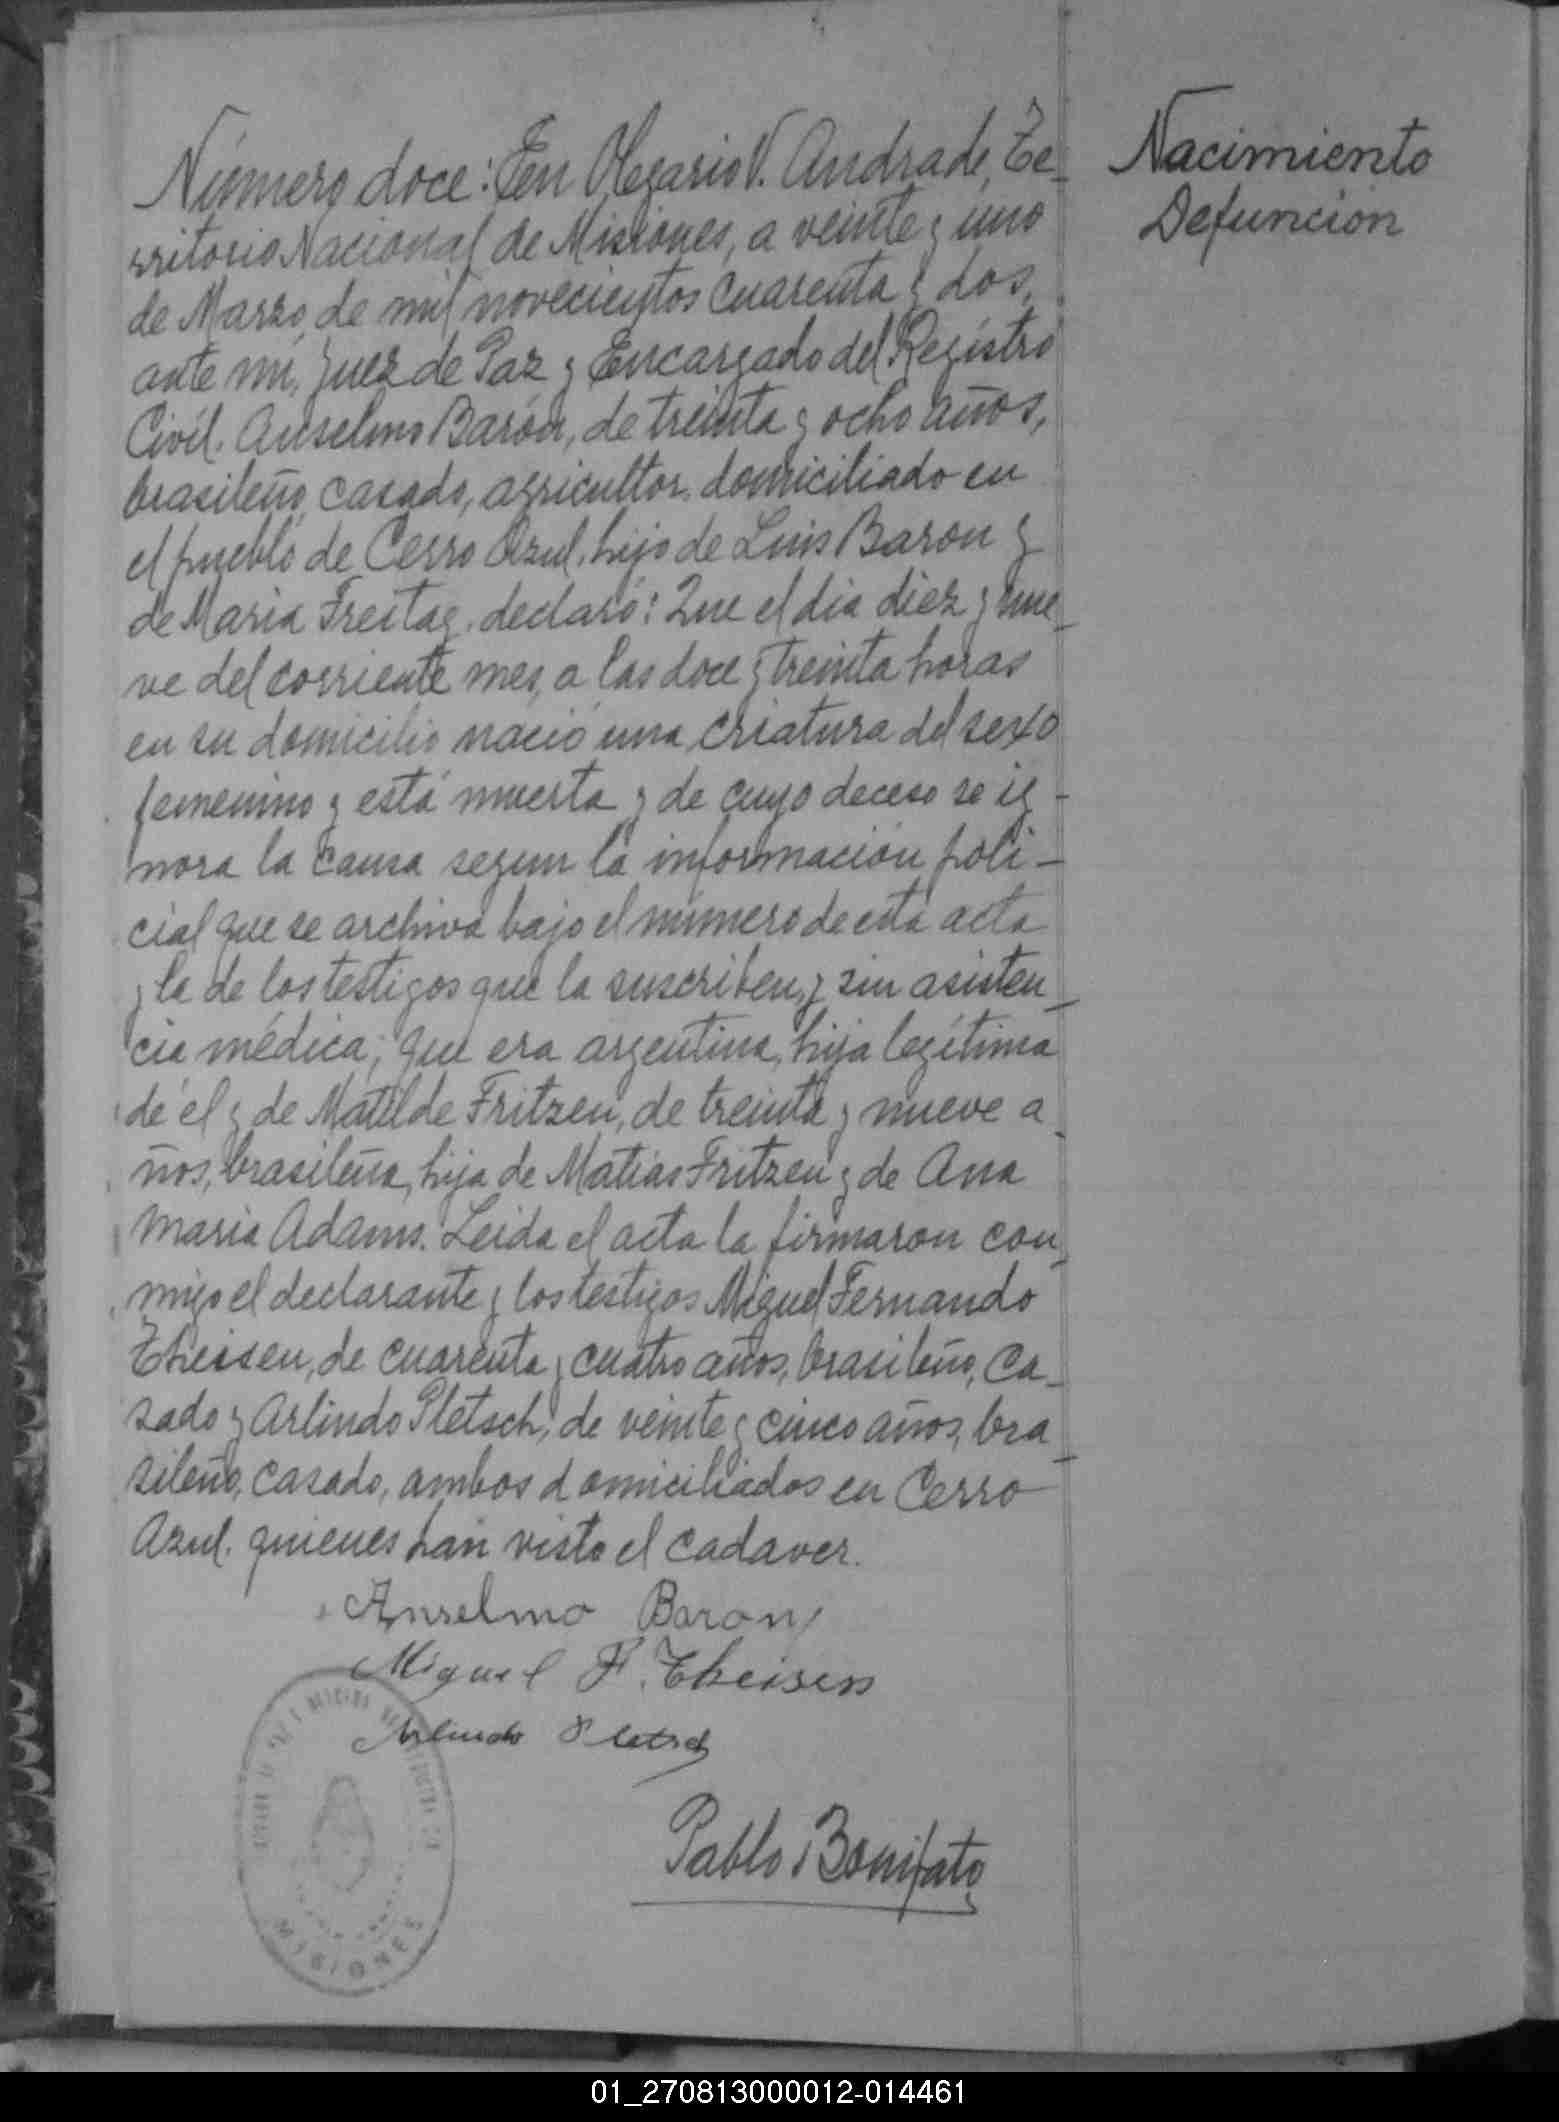 Nacimiento
Defunción
Número doce: En Olegario V. Andrade, Te-
rritorio Nacional de Misiones, a veinte y uno
de Marzo de mil novecientos cuarenta y dos,
ante mi, Juez de Paz y Encargado del Registro
Civil. Anselmo Barón, de treinta y ocho años,
brasileño, casado, agricultor, domiciliado en
el pueblo de Cerro Azul, hijo de Luis Baron y
de Maria Freitag, declaró: Que el dia diez y nue-
ve del corriente mes, a las doce y treinta horas
en su domicilio nació una criatura del sexo
femenino y está muerta y de cuyo deceso se ig-
nora la causa segun la información poli-
cial que se archiva bajo el número de esta acta
y la de los testigos que la suscriben, y sin asisten-
cia médica; que era argentina, hija legítima
de él y de Matilde Fritzen, de treinta y nueve a-
ños, brasileña, hija de Matias Fritzen y de Ana
Maria Adams. Leida el acta la firmaron con-
migo el declarante y los testigos Miguel Fernando
Theissen, de cuarenta y cuatro años, brasileño, ca-
sado y Arlindo Pletsch, de veinte y cinco años, bra-
sileño, casado, ambos domiciliados en Cerro
Azul. quienes han visto el cadaver.
Anselmo Baron
Miguel F. Theisen
Arlindo Pletsch
Pablo Bonifato
MISIONES
01_270813000012-014461